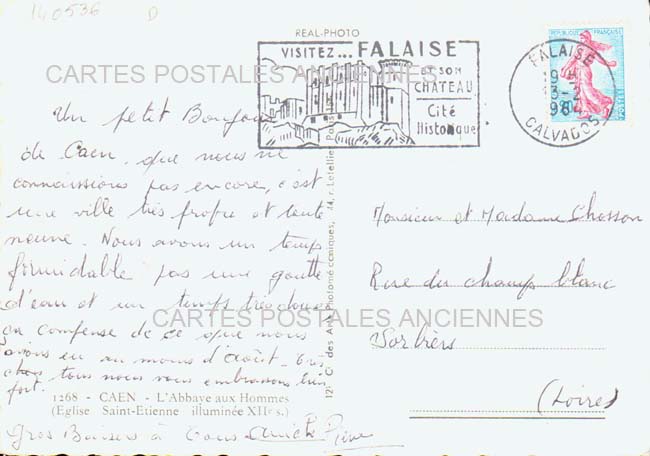 140536 D
REAL-PHOTO
VISITEZ... FALAISE
SON
CHATEAU
Cité
Historique
FALAISE
19 H
3-2
1964
CALVADOS
REPUBLIQUE FRANÇAISE
CARTES POSTALES ANCIENNES
Un petit Bonjour
de Caen, que nous ne
connaissions pas encore, c'est
une ville très propre et toute
neuve. Nous avons un temps
formidable pas une goutte
d'eau et un temps très doux
en compense de ce que nous
avons eu au mois d'Août.
tous nous vous embrassons bien
fort.
1268 - CAEN - L'Abbaye aux Hommes
(Eglise Saint-Etienne illuminée XIIe s.)
Gros Baisers à Tous
12, Cie des Arts Photomécaniques, 44, r. Letellier Paris
Monsieur et Madame Chosson
Rue du champ blanc
Sorbiers
(Loire)
CARTES POSTALES ANCIENNES